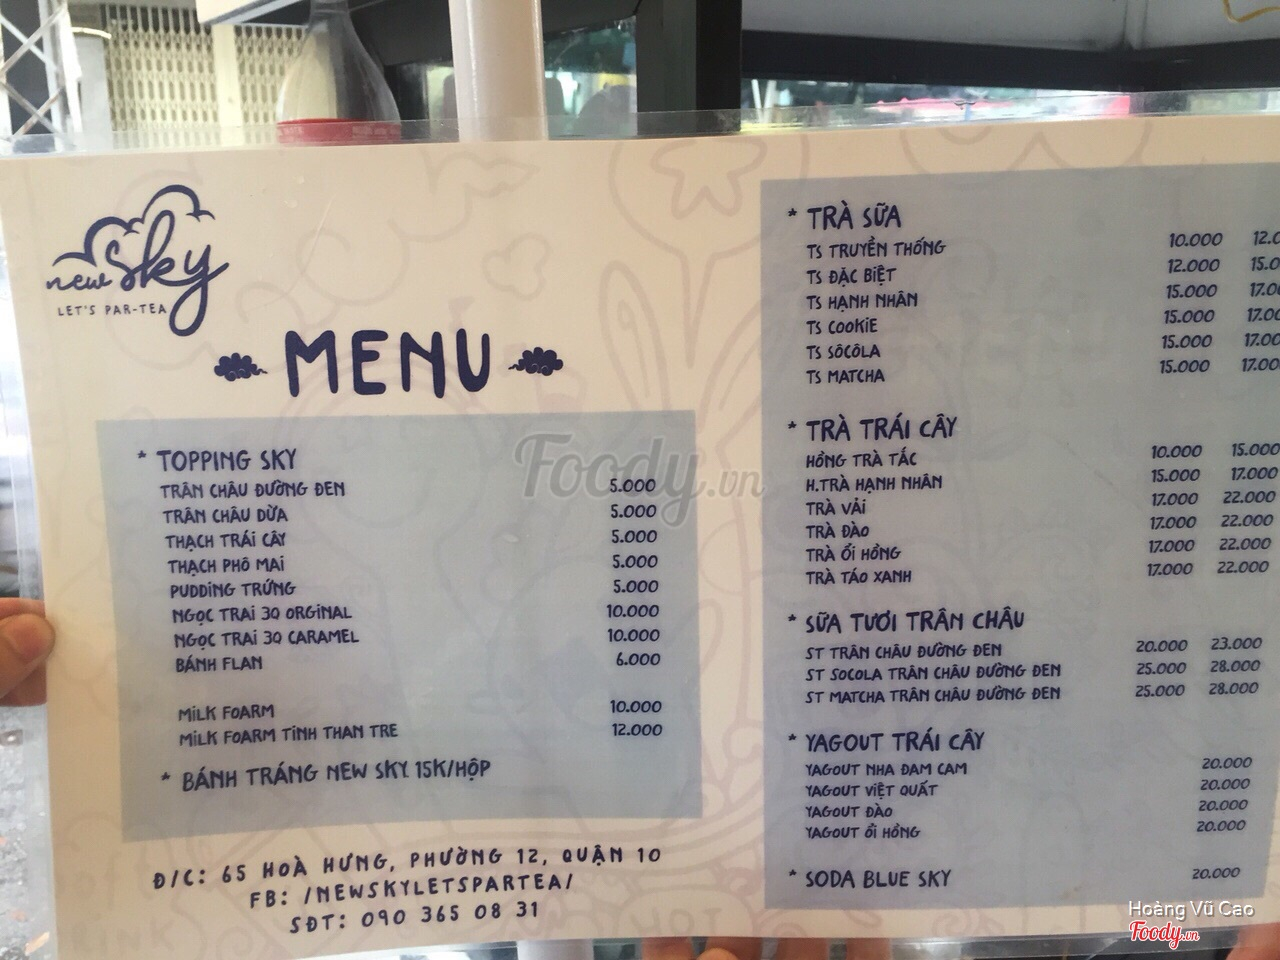 new sky
LET'S PAR-TEA
MENU
* TOPPING SKY
TRÂN CHÂU ĐƯỜNG ĐEN 5.000
TRÂN CHÂU DỪA 5.000
THẠCH TRÁI CÂY 5.000
THẠCH PHÔ MAI 5.000
PUDDING TRỨNG 5.000
NGỌC TRAI 3Q ORGINAL 10.000
NGỌC TRAI 3Q CARAMEL 10.000
BÁNH FLAN 6.000
MILK FOARM 10.000
MILK FOARM TINH THAN TRE 12.000
* BÁNH TRÁNG NEW SKY 15K/HỘP
Đ/C: 65 HOÀ HƯNG, PHƯỜNG 12, QUẬN 10
FB: /NEWSKYLETSPARTEA/
SĐT: 090 365 08 31
* TRÀ SỮA
TS TRUYỀN THỐNG 10.000
TS ĐẶC BIỆT 12.000
TS HẠNH NHÂN 15.000
TS COOKIE 15.000
TS SÔCÔLA 15.000 17.000
TS MATCHA 15.000 17.000
* TRÀ TRÁI CÂY
HỒNG TRÀ TẮC 10.000 15.000
H.TRÀ HẠNH NHÂN 15.000 17.000
TRÀ VẢI 17.000 22.000
TRÀ ĐÀO 17.000 22.000
TRÀ ỔI HỒNG 17.000 22.000
TRÀ TÁO XANH 17.000 22.000
* SỮA TƯƠI TRÂN CHÂU
ST TRÂN CHÂU ĐƯỜNG ĐEN 20.000 23.000
ST SOCOLA TRÂN CHÂU ĐƯỜNG ĐEN 25.000 28.000
ST MATCHA TRÂN CHÂU ĐƯỜNG ĐEN 25.000 28.000
* YAGOUT TRÁI CÂY
YAGOUT NHA ĐAM CAM 20.000
YAGOUT VIỆT QUẤT 20.000
YAGOUT ĐÀO 20.000
YAGOUT ỔI HỒNG 20.000
* SODA BLUE SKY 20.000
Foody.vn
Hoàng Vũ Cao
Foody.vn